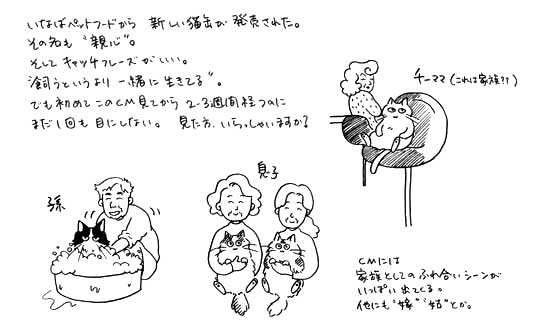 いなばペットフードから 新しい猫缶が発売された。
その名も"親心"。
そしてキャッチフレーズがいい。
"飼うというより 一緒に生きてる"。
でも初めてこのCM見てから 2-3週間経つのに
まだ1回も目にしない。 見た方、いらっしゃいますか?
チーママ(これは家族??)
孫
息子
CMには
家族としてのふれ合いシーンが
いっぱい出てくる。
他にも"嫁""姑"とか。